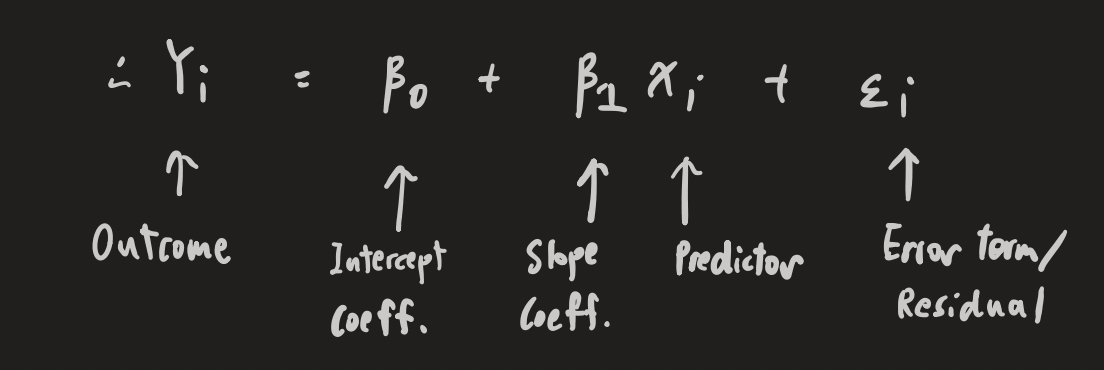 ∴ Yᵢ = β₀ + β₁ xᵢ + εᵢ
Outcome
Intercept Coeff.
Slope Coeff.
Predictor
Error term/
Residual